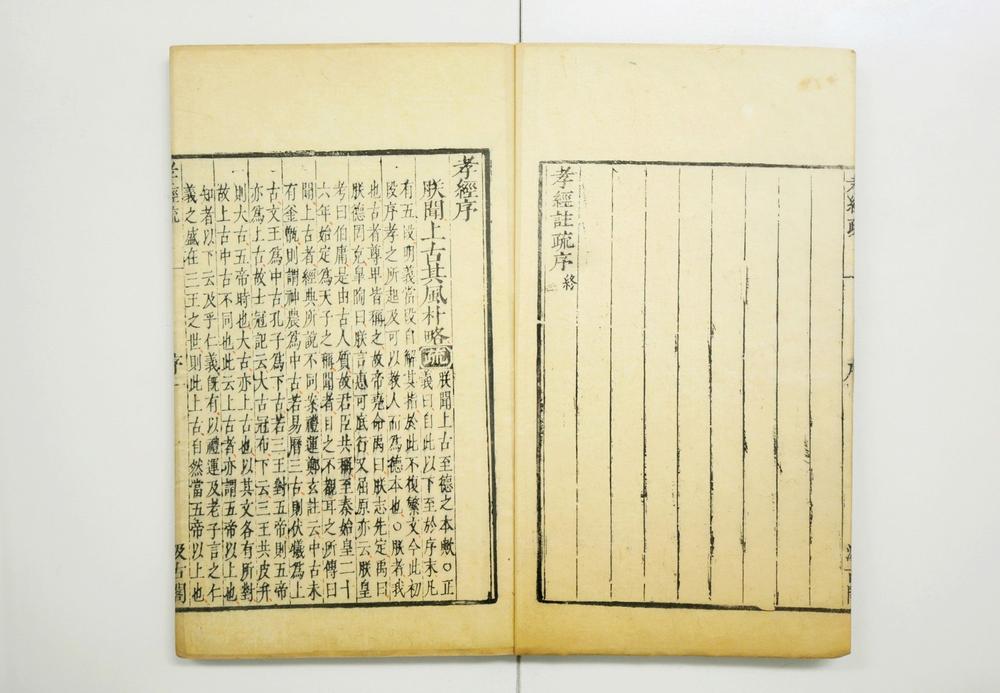 孝經註疏序終
孝經序
朕聞上古其風朴略疏
朕聞上古至德之本歟○正
義曰自此以下至於序末凡
有五段明義當段自解其指於此不復繁文今此初
段序孝之所起及可以教人而為德本也○朕者我
也古者尊卑皆稱之故帝堯命禹曰朕志先定禹曰
朕德罔克皐陶曰朕言惠可底行又屈原亦云朕皇
考曰伯庸是由古人質故君臣共稱至秦始皇二十
六年始定為天子之稱聞者目之不覩耳之所傳曰
聞上古者經典所說不同案禮運鄭玄註云中古未
有釜甑則謂神農為中古若易曆三古則伏犧為上
古文王為中古孔子為下古若三王對五帝則五帝
亦為上古故士冠記云大古冠布下云三王共皮弁
則大古五帝時也大古亦上古也以其文各有所對
故上古中古不同也此云上古者亦謂五帝以上也
知者以下云及乎仁義旣有以禮運及老子言之仁
義之盛在三王之世則此上古自然當五帝以上也
孝經疏 序一 汲古閣